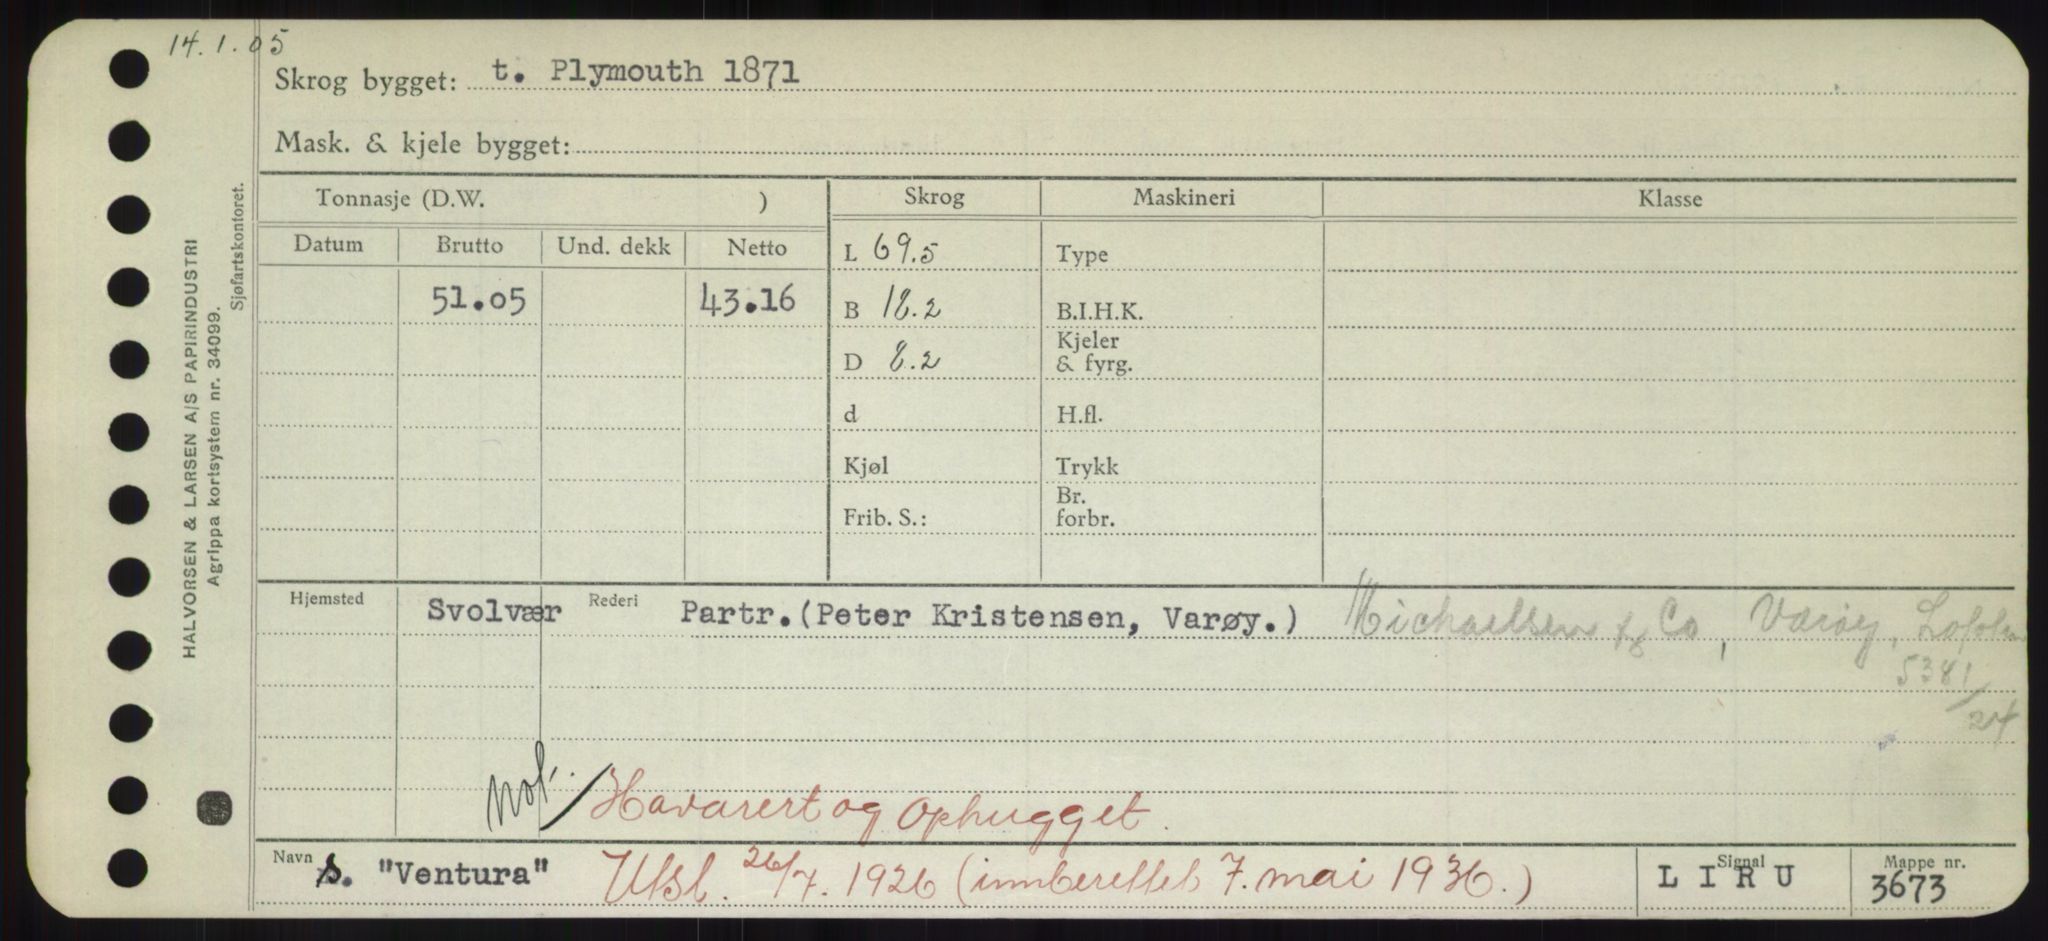 14.1.05
Skrog bygget: t. Plymouth 1871
Mask. & kjele bygget:
Tonnasje (D.W. ) Skrog Maskineri Klasse
Datum Brutto Und. dekk Netto L 69.5 Type
51.05 43.16 B 18.2 B.I.H.K.
D 8.2 Kjeler & fyrg.
d H.fl.
Kjøl Trykk
Frib. S.: Br. forbr.
Hjemsted Svolvær Rederi Partr.(Peter Kristensen, Varøy.) Michaelsen & Co, Værøy, Lofoten
5381/24
not. / Havarert og ophugget.
Navn s. "Ventura" Utsl. 26/7. 1926 (innberettet 7. mai 1936.) Signal LIRU Mappe nr. 3673
HALVORSEN & LARSEN A/S PAPIRINDUSTRI
Agrippa kortsystem nr. 34099.
Sjøfartskontoret.